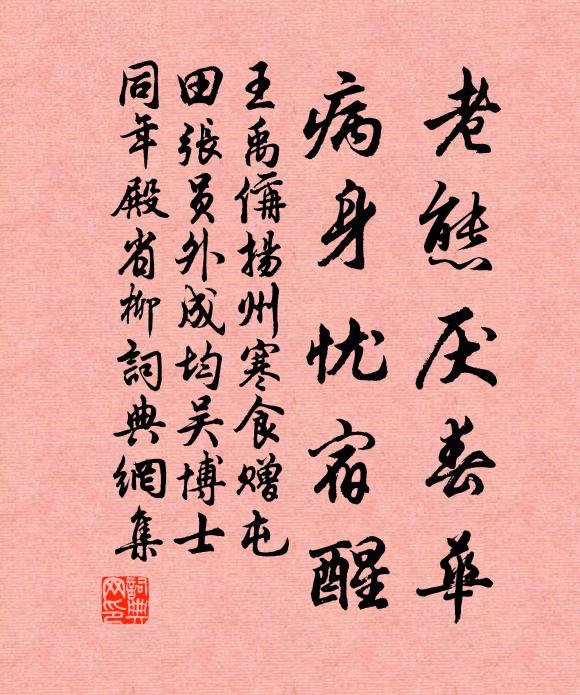 老態厌春華
病身忧宿醒
王禹偁揚州寒食赠屯
田張员外成均吴博士
同年殿省柳詞典網集
詞典
网印